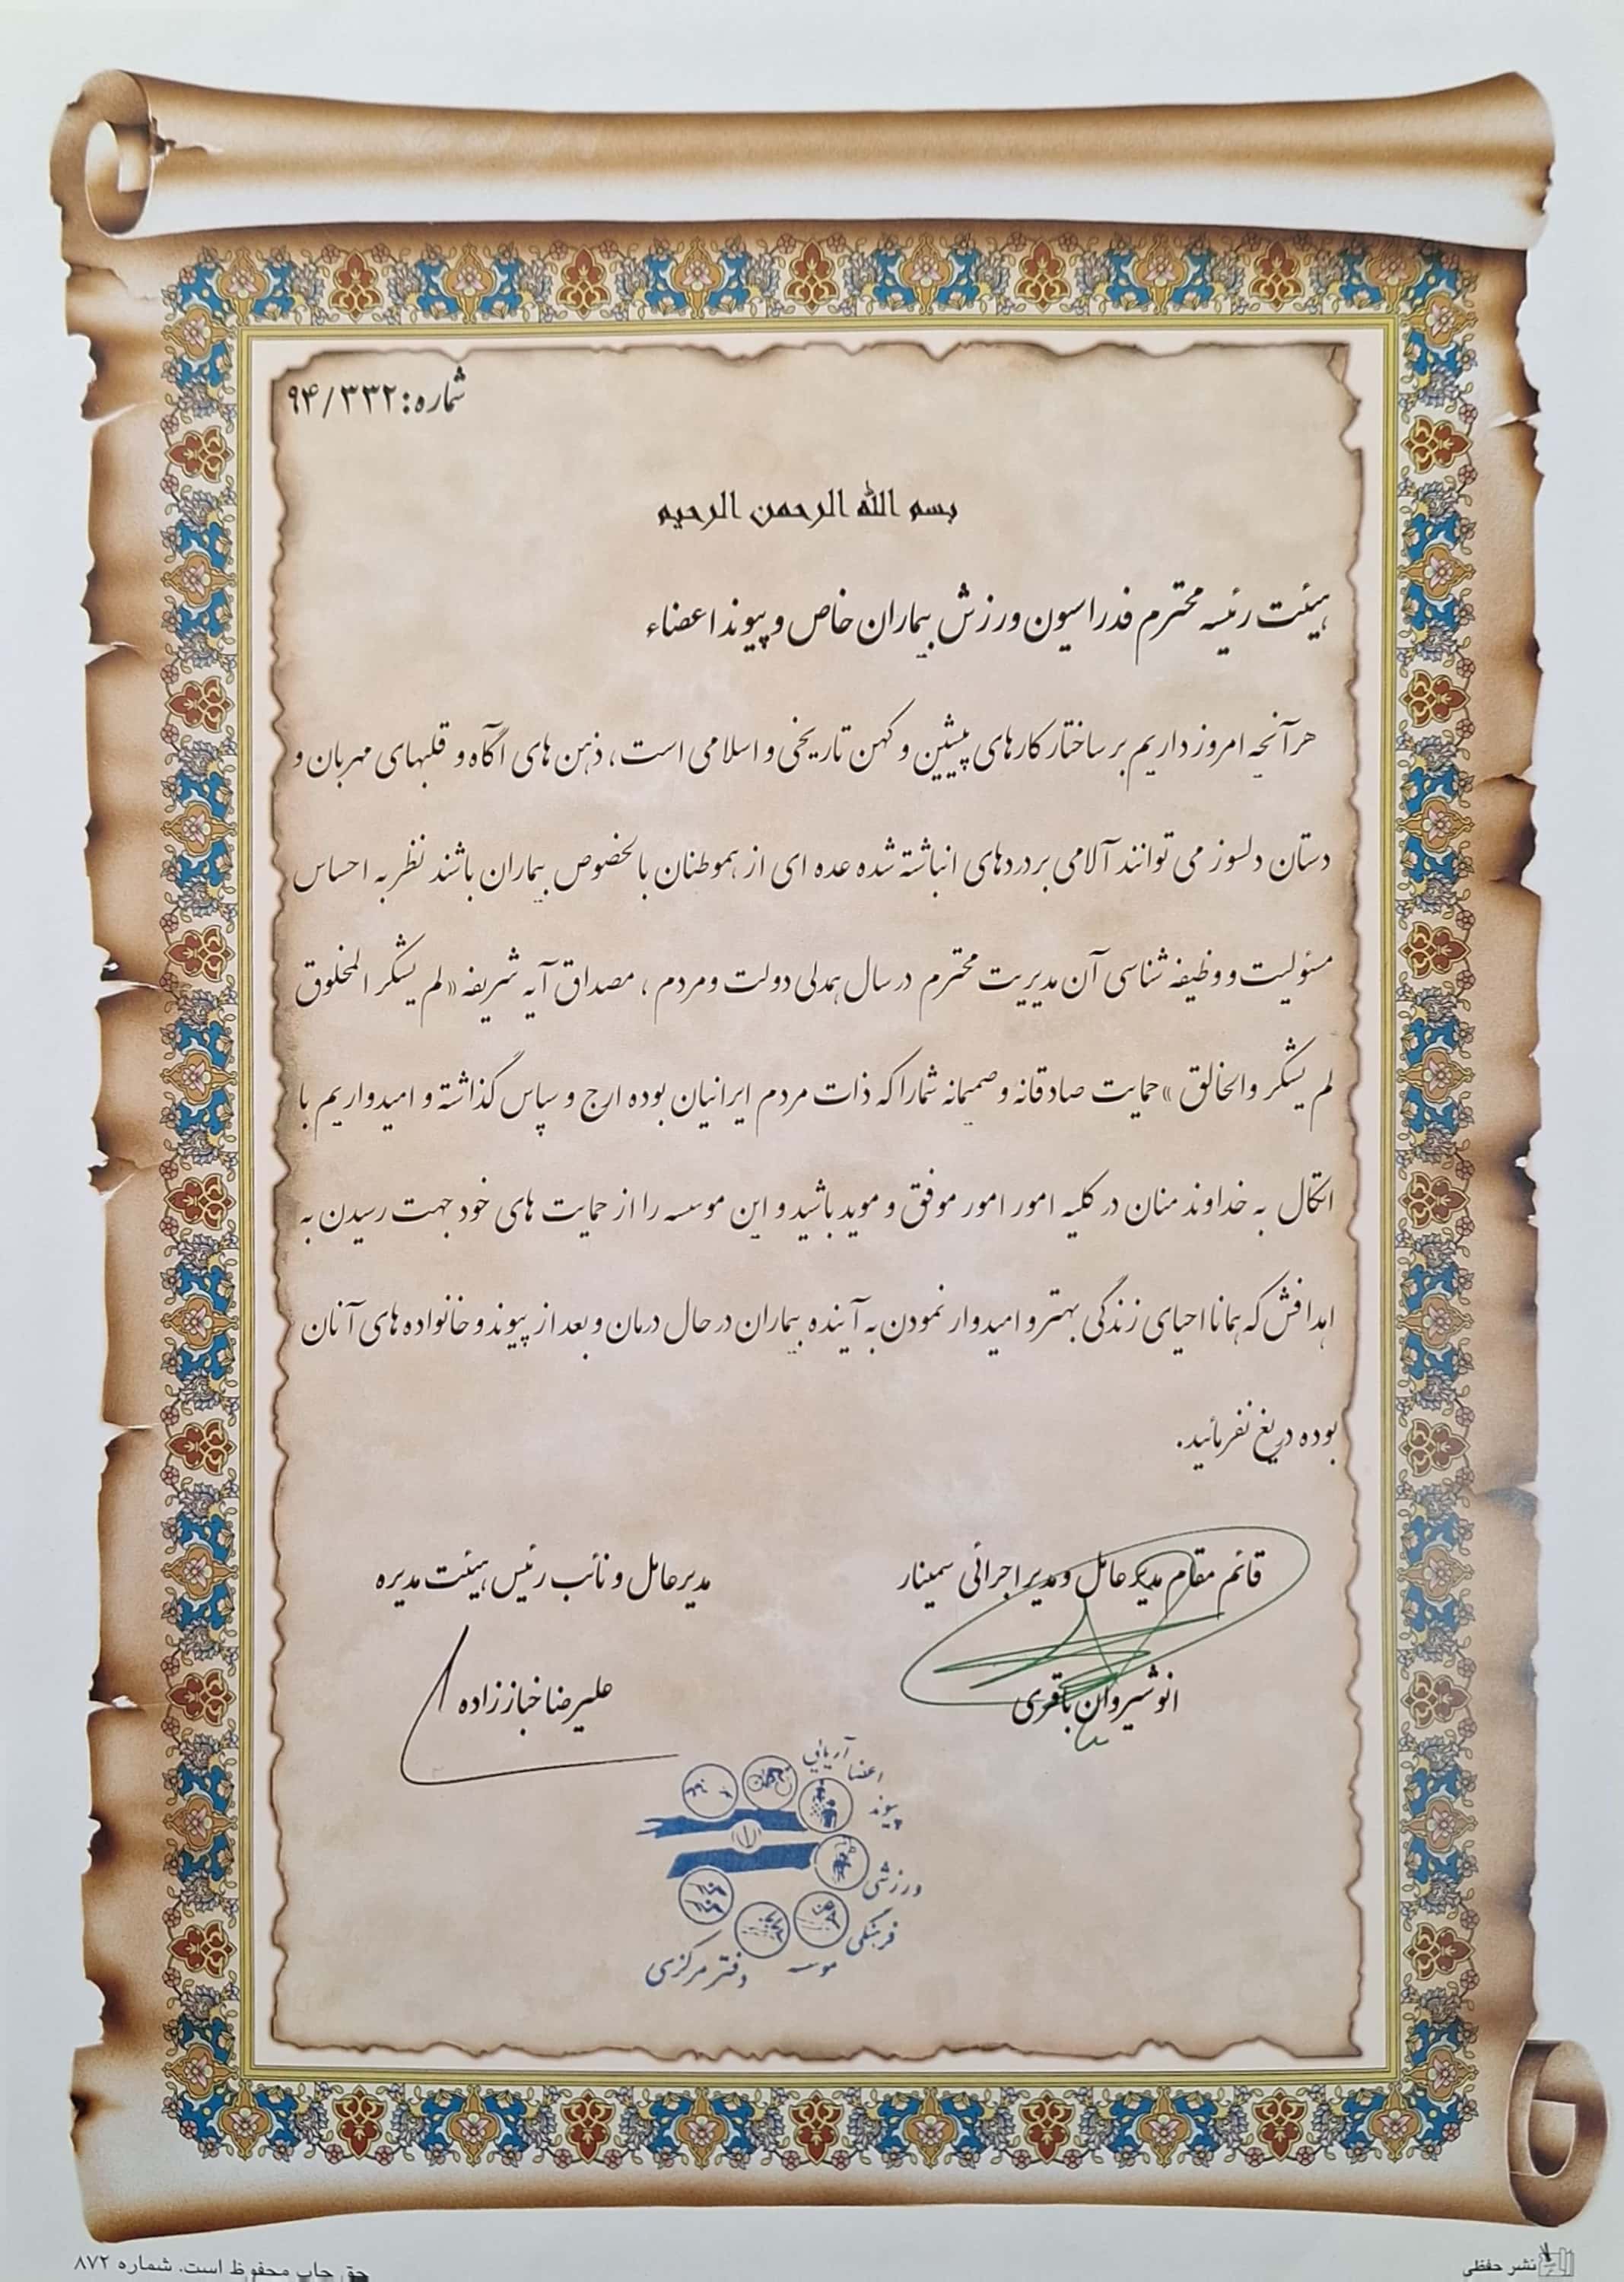 شماره: ۹۴/۳۳۲
بسم الله الرحمن الرحیم
هیئت رئیسه محترم فدراسیون ورزش بیماران خاص و پیوند اعضاء
هر آنچه امروز داریم بر ساختار کارهای پیشین و کهن تاریخی و اسلامی است، ذهن های آگاه و قلبهای مهربان و
دستان دلسوز می توانند آلامی بر دردهای انباشته شده عده ای از هموطنان بالخصوص بیماران باشند نظر به احساس
مسئولیت و وظیفه شناسی آن مدیریت محترم در سال همدلی دولت و مردم ، مصداق آیه شریفه «لم یشکر المخلوق
لم یشکر والخالق » حمایت صادقانه و صمیمانه شما را که ذات مردم ایرانیان بوده ارج و سپاس گذاشته و امیدواریم با
اتکال به خداوند منان در کلیه امور امور موفق و موید باشید و این موسسه را از حمایت های خود جهت رسیدن به
اهدافش که همانا احیای زندگی بهتر و امیدوار نمودن به آینده بیماران در حال درمان و بعد از پیوند و خانواده های آنان
بوده دریغ نفرمائید.
قائم مقام مدیر عامل و مدیر اجرائی سمینار
مدیر عامل و نائب رئیس هیئت مدیره
انوشیروان باقری
علیرضا خباززاده
آریایی
اعضا
پیوند
ورزشی
فرهنگی
موسسه
دفتر مرکزی
نشر حفظی
حق چاپ محفوظ است. شماره ۸۷۲